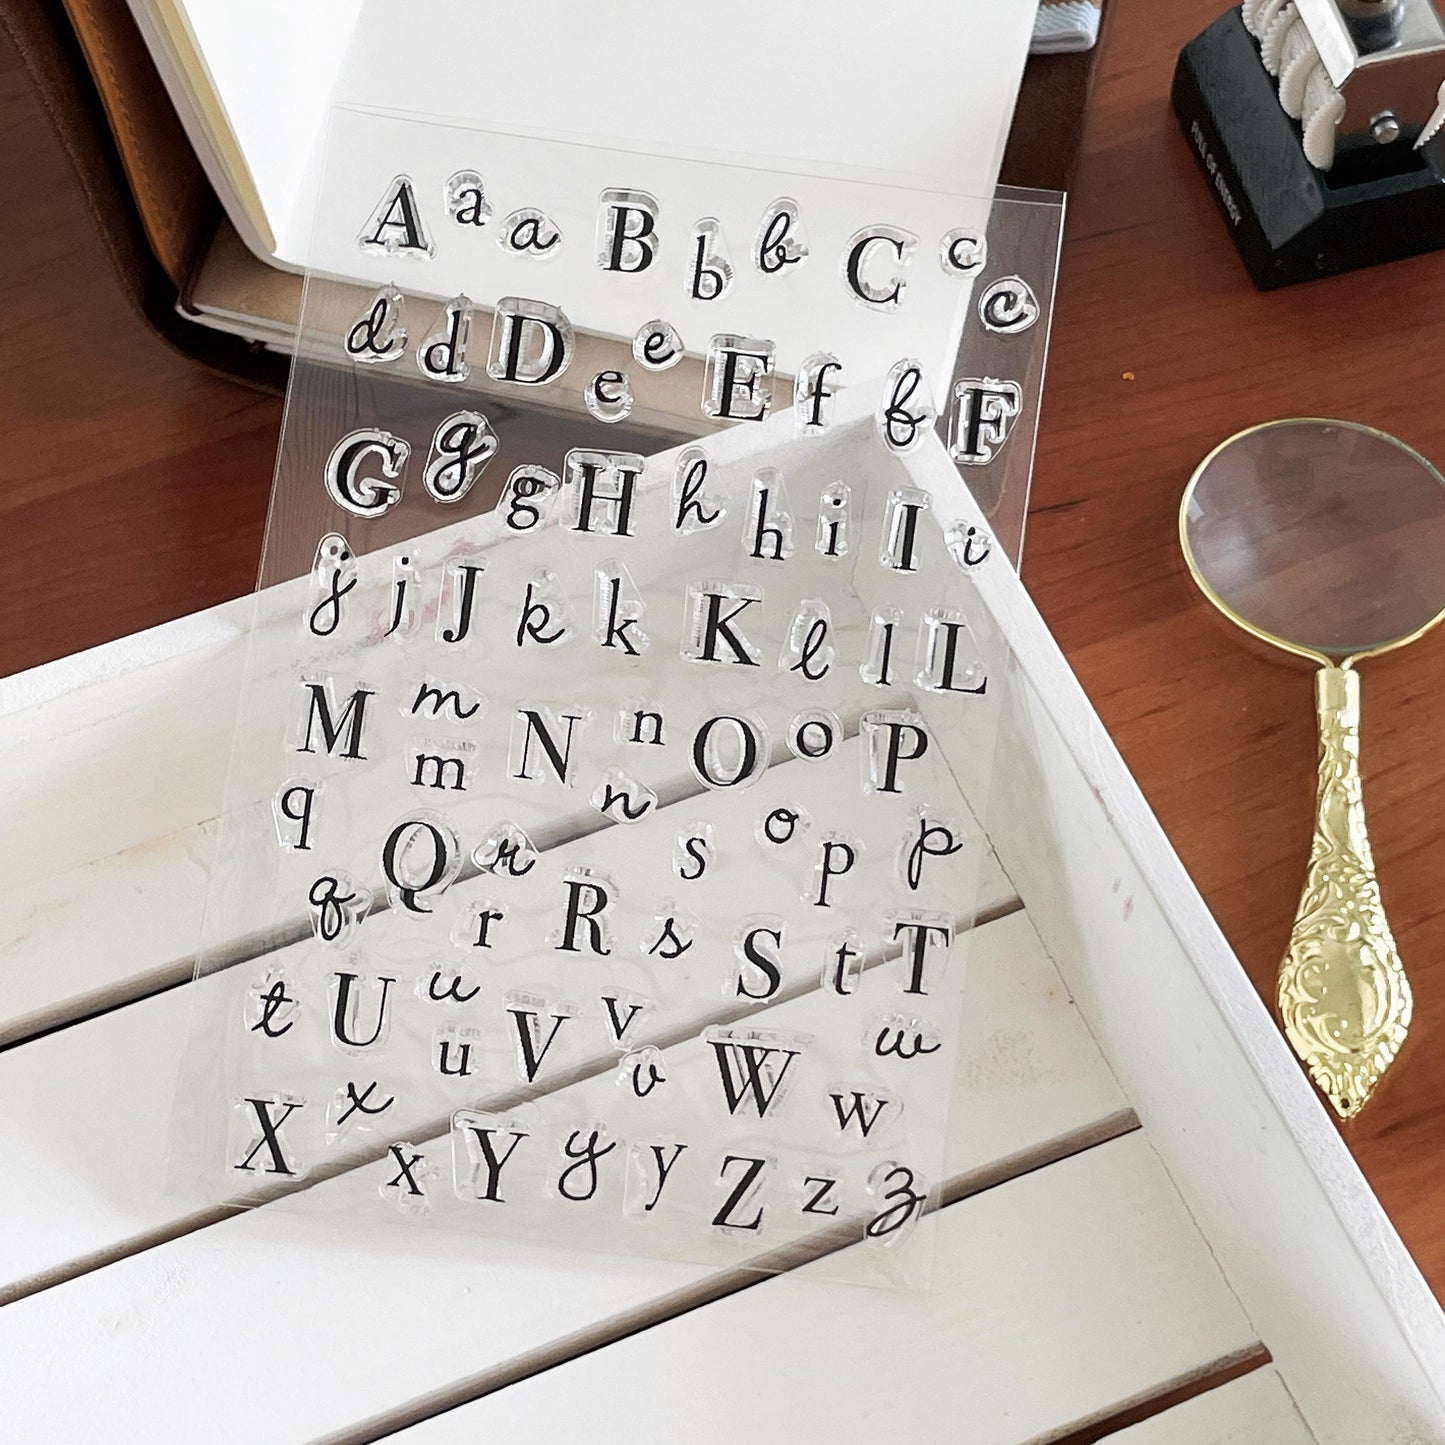 A a a B b b C c c
d d D e e E f f F
G g g H h h i I i
j j J k k K l l L
M m m N n n O o P
q Q r s o p p
q r R s S t T
t U u u V v v W w w
X x x Y y y Z z z